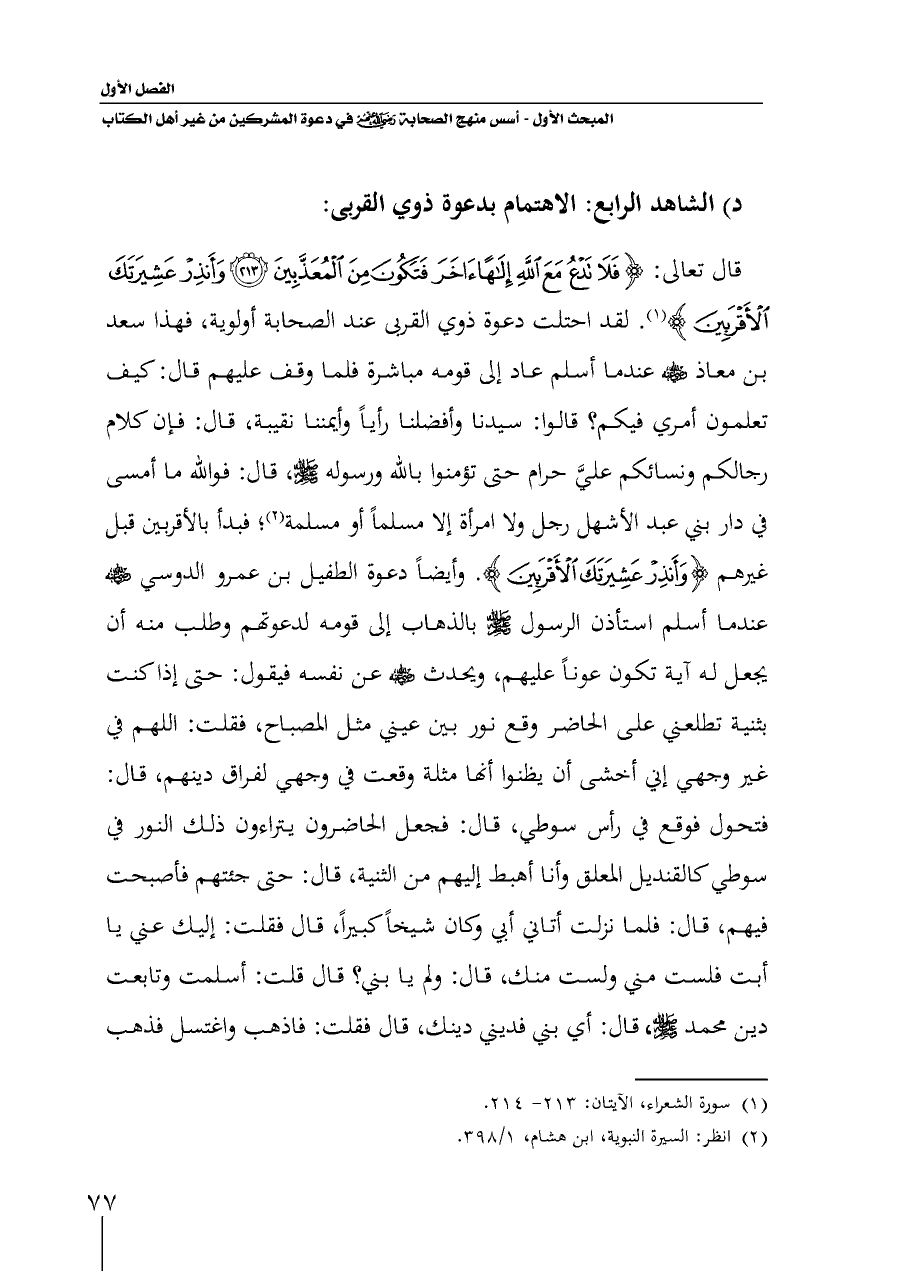 الفصل الأول
المبحث الأول - أسس منهج الصحابة رضي الله عنهم في دعوة المشركين من غير أهل الكتاب
د) الشاهد الرابع: الاهتمام بدعوة ذوي القربى:
قال تعالى: ﴿فَلَا تَدْعُ مَعَ ٱللَّهِ إِلَٰهًا ءَاخَرَ فَتَكُونَ مِنَ ٱلْمُعَذَّبِينَ ٢١٣ وَأَنذِرْ عَشِيرَتَكَ
ٱلْأَقْرَبِينَ﴾(١). لقد احتلت دعوة ذوي القربى عند الصحابة أولوية، فهذا سعد
بن معاذ رضي الله عنه عندما أسلم عاد إلى قومه مباشرة فلما وقف عليهم قال: كيف
تعلمون أمري فيكم؟ قالوا: سيدنا وأفضلنا رأياً وأيمننا نقيبة، قال: فإن كلام
رجالكم ونسائكم عليَّ حرام حتى تؤمنوا بالله ورسوله ﷺ، قال: فوالله ما أمسى
في دار بني عبد الأشهل رجل ولا امرأة إلا مسلماً أو مسلمة(٢)؛ فبدأ بالأقربين قبل
غيرهم ﴿وَأَنذِرْ عَشِيرَتَكَ ٱلْأَقْرَبِينَ﴾. وأيضاً دعوة الطفيل بن عمرو الدوسي رضي الله عنه
عندما أسلم استأذن الرسول ﷺ بالذهاب إلى قومه لدعوتهم وطلب منه أن
يجعل له آية تكون عوناً عليهم، ويحدث رضي الله عنه عن نفسه فيقول: حتى إذا كنت
بثنية تطلعني على الحاضر وقع نور بين عيني مثل المصباح، فقلت: اللهم في
غير وجهي إني أخشى أن يظنوا أنها مثلة وقعت في وجهي لفراق دينهم، قال:
فتحول فوقع في رأس سوطي، قال: فجعل الحاضرون يتراءون ذلك النور في
سوطي كالقنديل المعلق وأنا أهبط إليهم من الثنية، قال: حتى جئتهم فأصبحت
فيهم، قال: فلما نزلت أتاني أبي وكان شيخاً كبيراً، قال فقلت: إليك عني يا
أبت فلست مني ولست منك، قال: ولم يا بني؟ قال قلت: أسلمت وتابعت
دين محمد ﷺ، قال: أي بني فديني دينك، قال فقلت: فاذهب واغتسل فذهب
(١) سورة الشعراء، الآيتان: ٢١٣- ٢١٤.
(٢) انظر: السيرة النبوية، ابن هشام، ٣٩٨/١.
٧٧